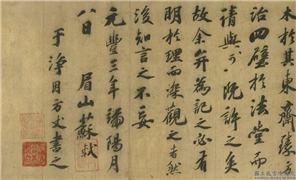 木於其東齋臻方
治四壁於法堂而
請與可既許之矣
故余并為記之必有
明於理而深觀之者然
後知言之不妄
元豐三年端陽月
八日眉山蘇軾
于淨因方丈書之